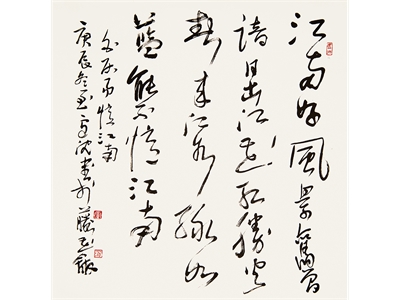 江南好風景舊曾
諳日出江花紅勝火
春來江水綠如
藍能不憶江南
白居易憶江南
庚辰冬書於